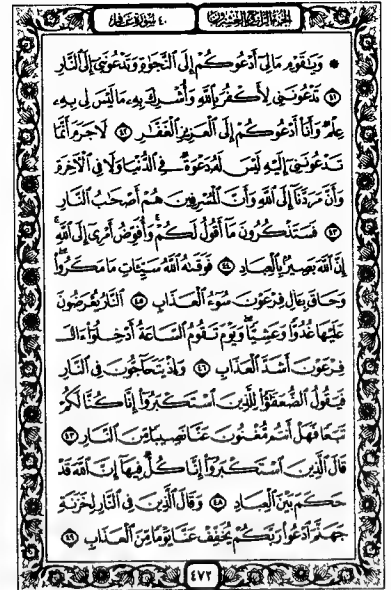 الجزء الرابع والعشرون ٤٠ سورة غافر
۞ وَيَٰقَوۡمِ مَالِيٓ أَدۡعُوكُمۡ إِلَى ٱلنَّجَوٰةِ وَتَدۡعُونَنِيٓ إِلَى ٱلنَّارِ
٤١ تَدۡعُونَنِي لِأَكۡفُرَ بِٱللَّهِ وَأُشۡرِكَ بِهِۦ مَالَيۡسَ لِي بِهِۦ
عِلۡمٞ وَأَنَا۠ أَدۡعُوكُمۡ إِلَى ٱلۡعَزِيزِ ٱلۡغَفَّٰرِ ٤٢ لَاجَرَمَ أَنَّمَا
تَدۡعُونَنِيٓ إِلَيۡهِ لَيۡسَ لَهُۥ دَعۡوَةٞ فِي ٱلدُّنۡيَا وَلَا فِي ٱلۡأٓخِرَةِ
وَأَنَّ مَرَدَّنَآ إِلَى ٱللَّهِ وَأَنَّ ٱلۡمُسۡرِفِينَ هُمۡ أَصۡحَٰبُ ٱلنَّارِ
٤٣ فَسَتَذۡكُرُونَ مَآ أَقُولُ لَكُمۡۚ وَأُفَوِّضُ أَمۡرِيٓ إِلَى ٱللَّهِۚ
إِنَّ ٱللَّهَ بَصِيرُۢ بِٱلۡعِبَادِ ٤٤ فَوَقَىٰهُ ٱللَّهُ سَيِّـَٔاتِ مَا مَكَرُواْۖ
وَحَاقَ بِـَٔالِ فِرۡعَوۡنَ سُوٓءُ ٱلۡعَذَابِ ٤٥ ٱلنَّارُ يُعۡرَضُونَ
عَلَيۡهَا غُدُوّٗا وَعَشِيّٗاۖ وَيَوۡمَ تَقُومُ ٱلسَّاعَةُ أَدۡخِلُوٓاْ ءَالَ
فِرۡعَوۡنَ أَشَدَّ ٱلۡعَذَابِ ٤٦ وَإِذۡ يَتَحَآجُّونَ فِي ٱلنَّارِ
فَيَقُولُ ٱلضُّعَفَٰٓؤُاْ لِلَّذِينَ ٱسۡتَكۡبَرُوٓاْ إِنَّا كُنَّا لَكُمۡ
تَبَعٗا فَهَلۡ أَنتُم مُّغۡنُونَ عَنَّا نَصِيبٗا مِّنَ ٱلنَّارِ ٤٧
قَالَ ٱلَّذِينَ ٱسۡتَكۡبَرُوٓاْ إِنَّا كُلّٞ فِيهَآ إِنَّ ٱللَّهَ قَدۡ
حَكَمَ بَيۡنَ ٱلۡعِبَادِ ٤٨ وَقَالَ ٱلَّذِينَ فِي ٱلنَّارِ لِخَزَنَةِ
جَهَنَّمَ ٱدۡعُواْ رَبَّكُمۡ يُخَفِّفۡ عَنَّا يَوۡمٗا مِّنَ ٱلۡعَذَابِ ٤٩
٤٧٢